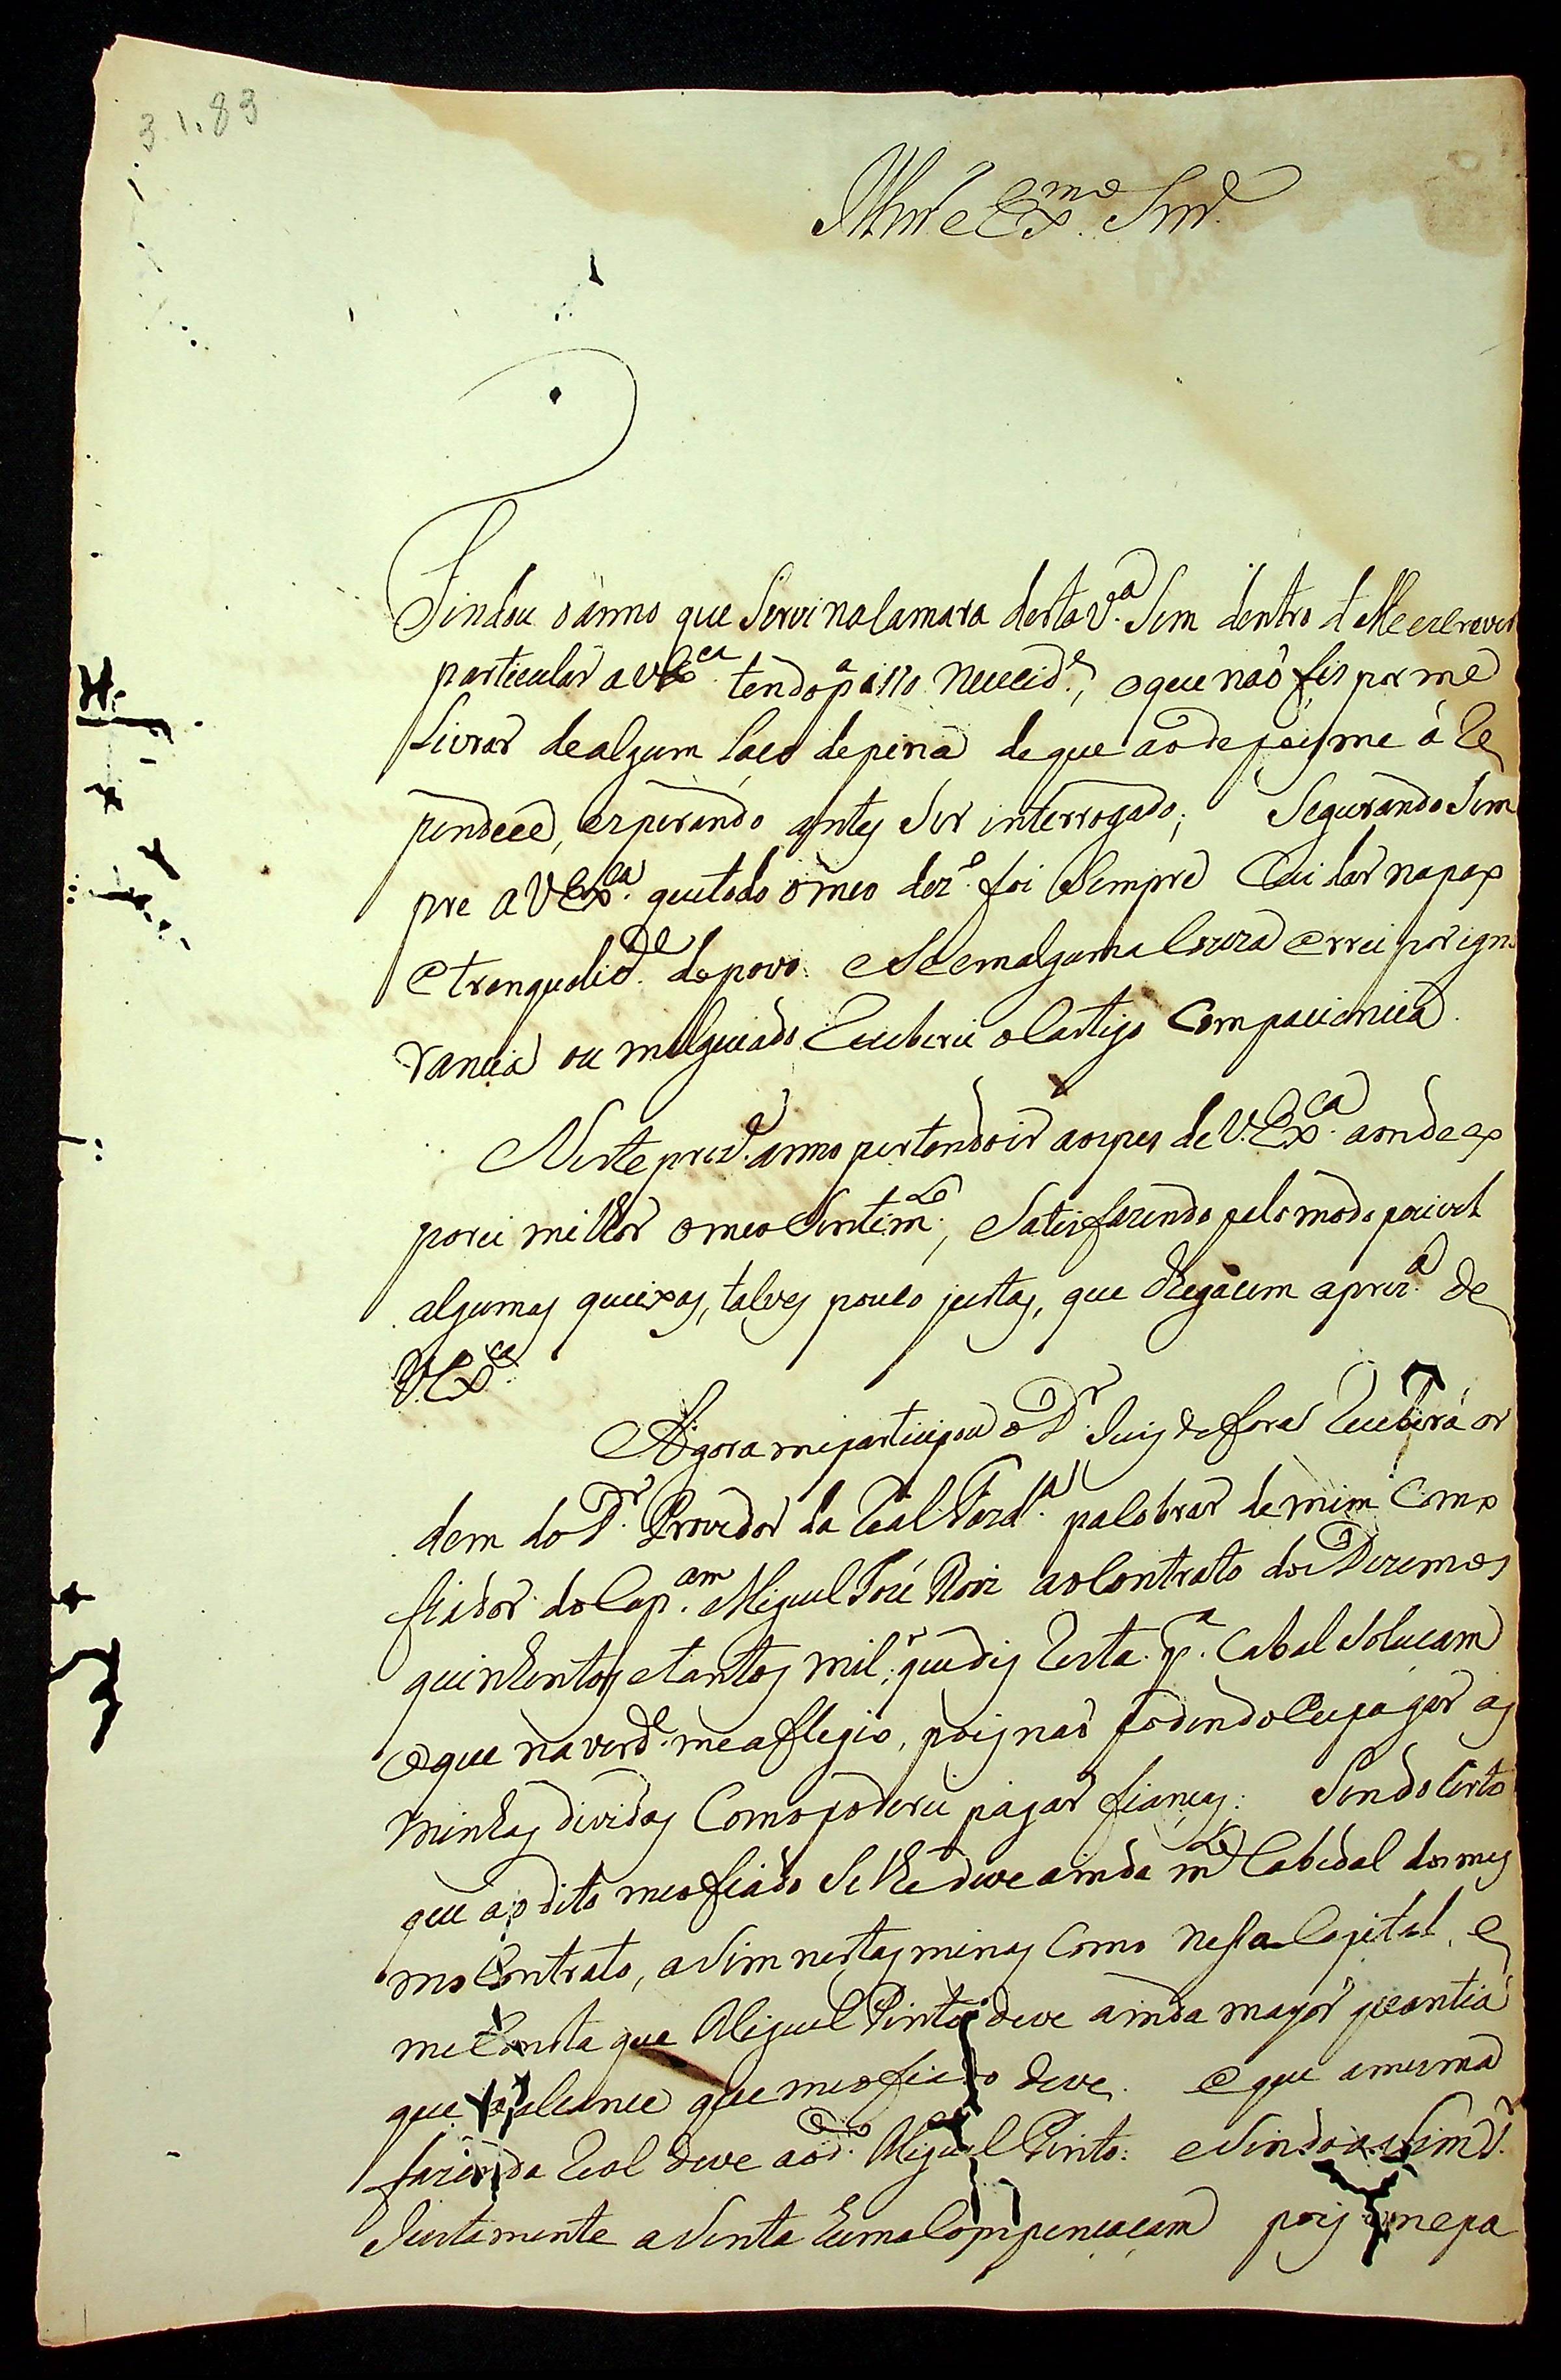 3.1.83
Illm.º e Ex.mo Snr.
Findou o anno que Servi na Camara desta V.a Sem dentro delle escrever
particular a VEx.ca tendo p.a isso nececid.e, o que naó fis por me
Livrar de algum laço de pena de que ao depois me áRe
pendece, esperando antes Ser interrogado; Segurando Sem
pre a VEx.ca que todo o meo dez.o foi Sempre Cuidar na pax
e tranqualid.e do povo: e Se em alguma Couza errei por igno
rancia ou mal guiado Receberei o Castigo Com paciencia.
Neste prez.e anno pertendo ir aos pes de V.Ex.ca aonde ex
porei milhor o meo Sentim.to, Satisfazendo pelo modo pocivel
algumas queixas, talves pouco justas, que chegacem a prez.a de
V.Ex.ca
Agora me participou o D.r Juis de fora Receberá or
dem do D.r Provedor da Real Fazd.a pa Cobrar de mim Como
fiador do Cap.am Miguel José Roiz ao Contrato dos Dizemos
quinhentos e tantos mil r.s que dis Resta p.a Cabal Solucam
o que na verd.e me aflegio, pois naó podendo Eu pagar as
minhas dividas Como poderei pagar fiancas: Sendo Certo
que ao dito meo fiado Se lhe deve ainda m.to Cabedal do mes
mo Contrato, aSim nestas minas Como nessa Capital, e
me Consta que Miguel Pinto deve ainda mayor quantia
que o alcance que meo fiado deve. e que a mesma
fazenda Real deve ao d.o Miguel Pinto: e Sindo aSim
Justamente aSenta huma Compencacam pois me pa